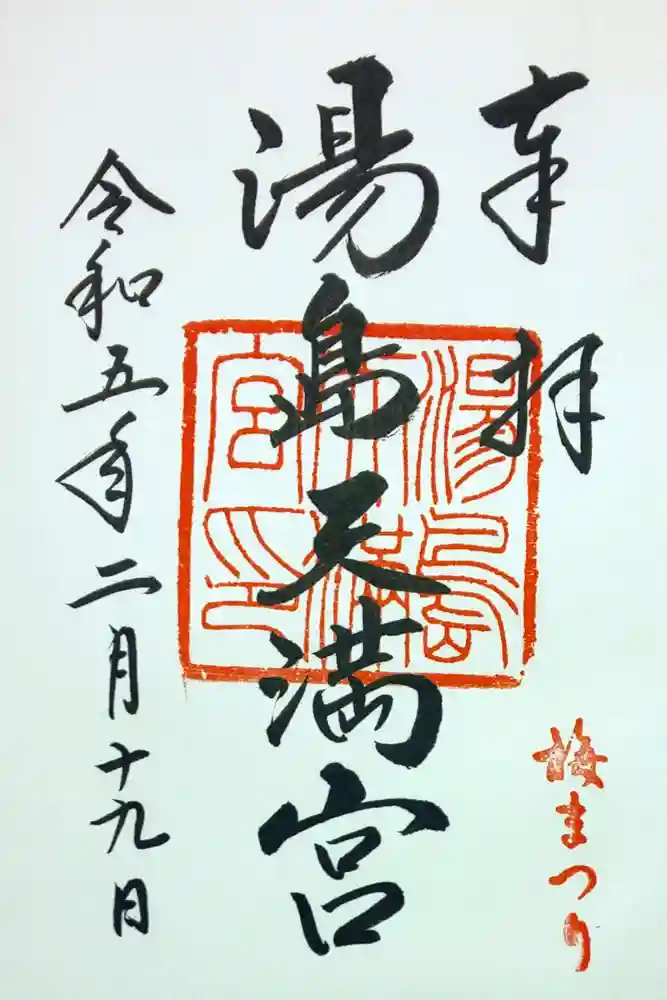 奉拝
梅まつり
湯島天満宮
湯島天満宮印
令和五年二月十九日